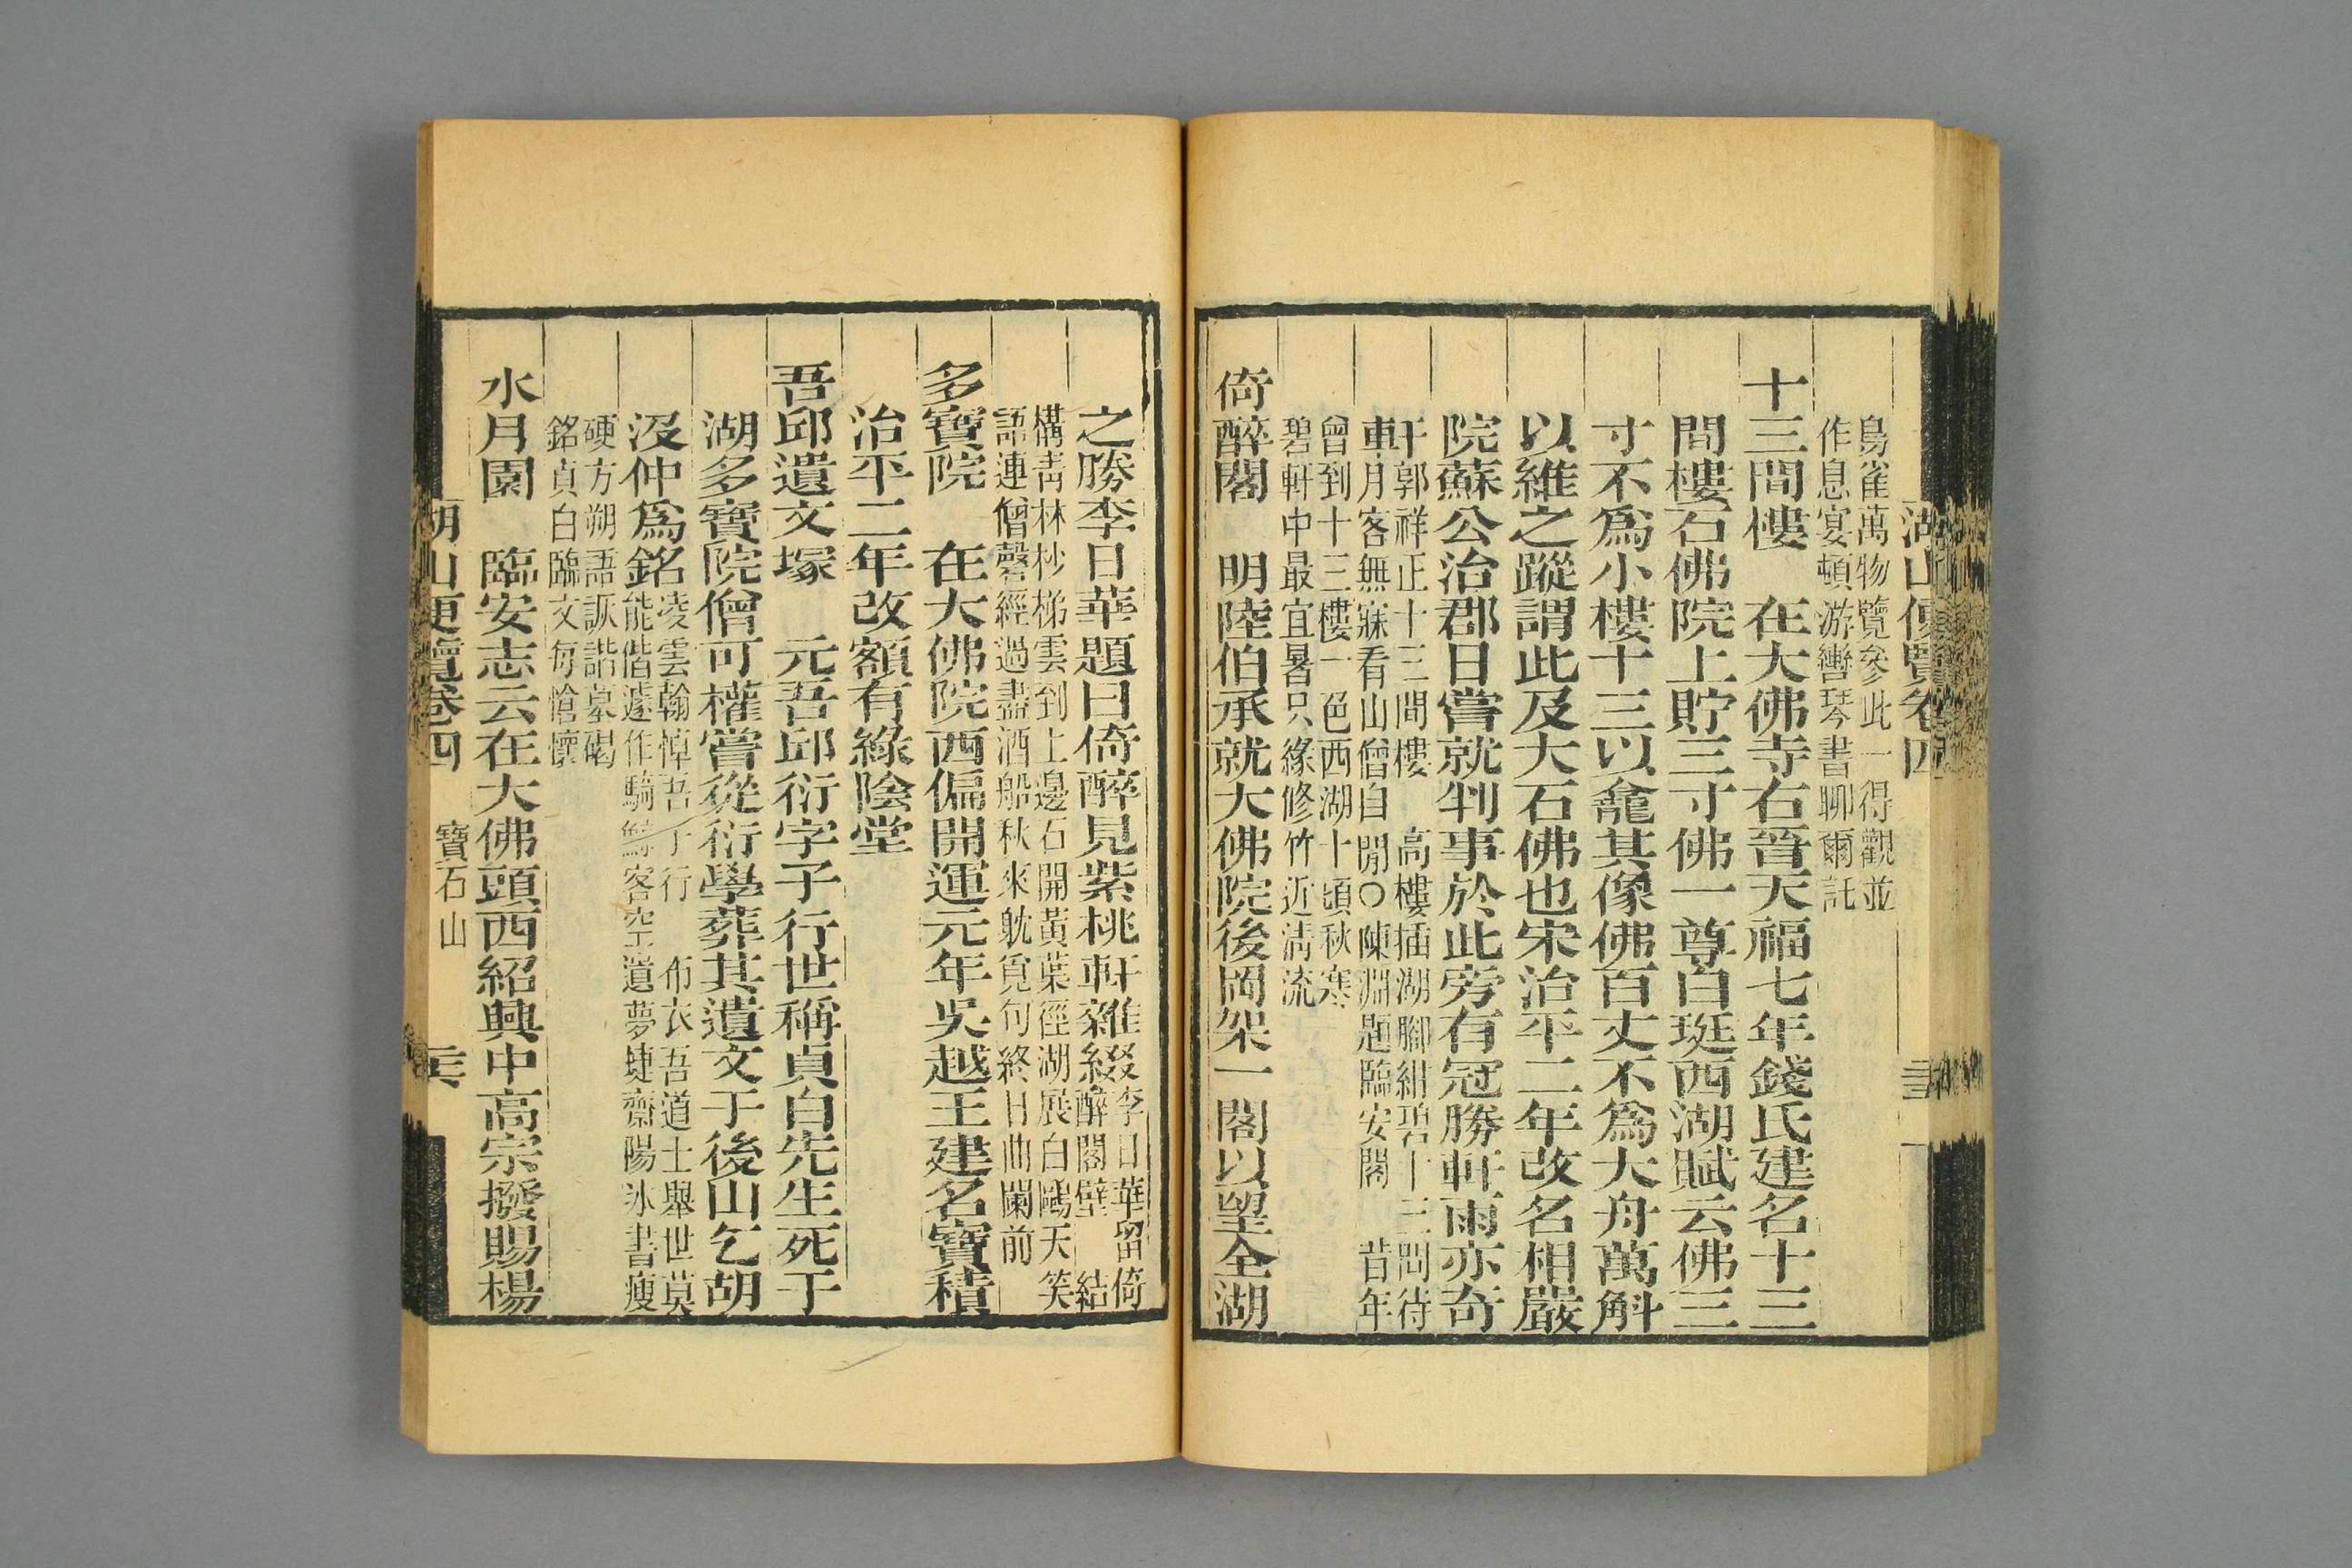 湖山便覽卷四
鳥雀萬物覽參此一得觀並
作息宴頓游巒琴書聊爾託
十三間樓　在大佛寺右晉天福七年錢氏建名十三
間樓石佛院上貯三寸佛一尊白珽西湖賦云佛三
寸不爲小樓十三以龕其像佛百丈不爲大舟萬斛
以維之蹤謂此及大石佛也宋治平二年改名相嚴
院蘇公治郡日嘗就判事於此旁有冠勝軒雨亦奇
軒郭祥正十三間樓　高樓插湖腳紺碧十三間待
車月客無寐看山僧自閒○陳淵題臨安閣　昔年
曾到十三樓一色西湖十頃秋寒
碧軒中最宜暑只緣修竹近淸流
倚醉閣　明陸伯承就大佛院後岡架一閣以望全湖
之勝李日華題曰倚醉見紫桃軒雜綴李日華留倚
醉閣壁　結
構靑林杪梯雲到上邊石開黃葉徑湖展白鷗天笑
語連僧磬經過盡酒船秋來躭覓句終日曲闌前
多寶院　在大佛院西偏開運元年吳越王建名寶積
治平二年改額有綠陰堂
吾邱遺文塚　元吾邱衍字子行世稱貞白先生死于
湖多寶院僧可權嘗從衍學葬其遺文于後山乞胡
汲仲爲銘凌雲翰悼吾子行　布衣吾道士舉世莫
能偕遽作騎鯨客空遺夢蜨齋陽冰書瘦
硬方朔語詼諧墓碣
銘貞白臨文每愴懷
水月園　臨安志云在大佛頭西紹興中高宗撥賜楊
湖山便覽卷四　寶石山